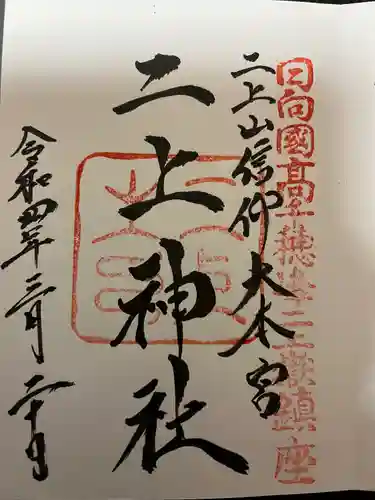 日向國高千穂峰二上嶽鎮座
二上山信仰大本宮
二上神社
令和四年三月二十日